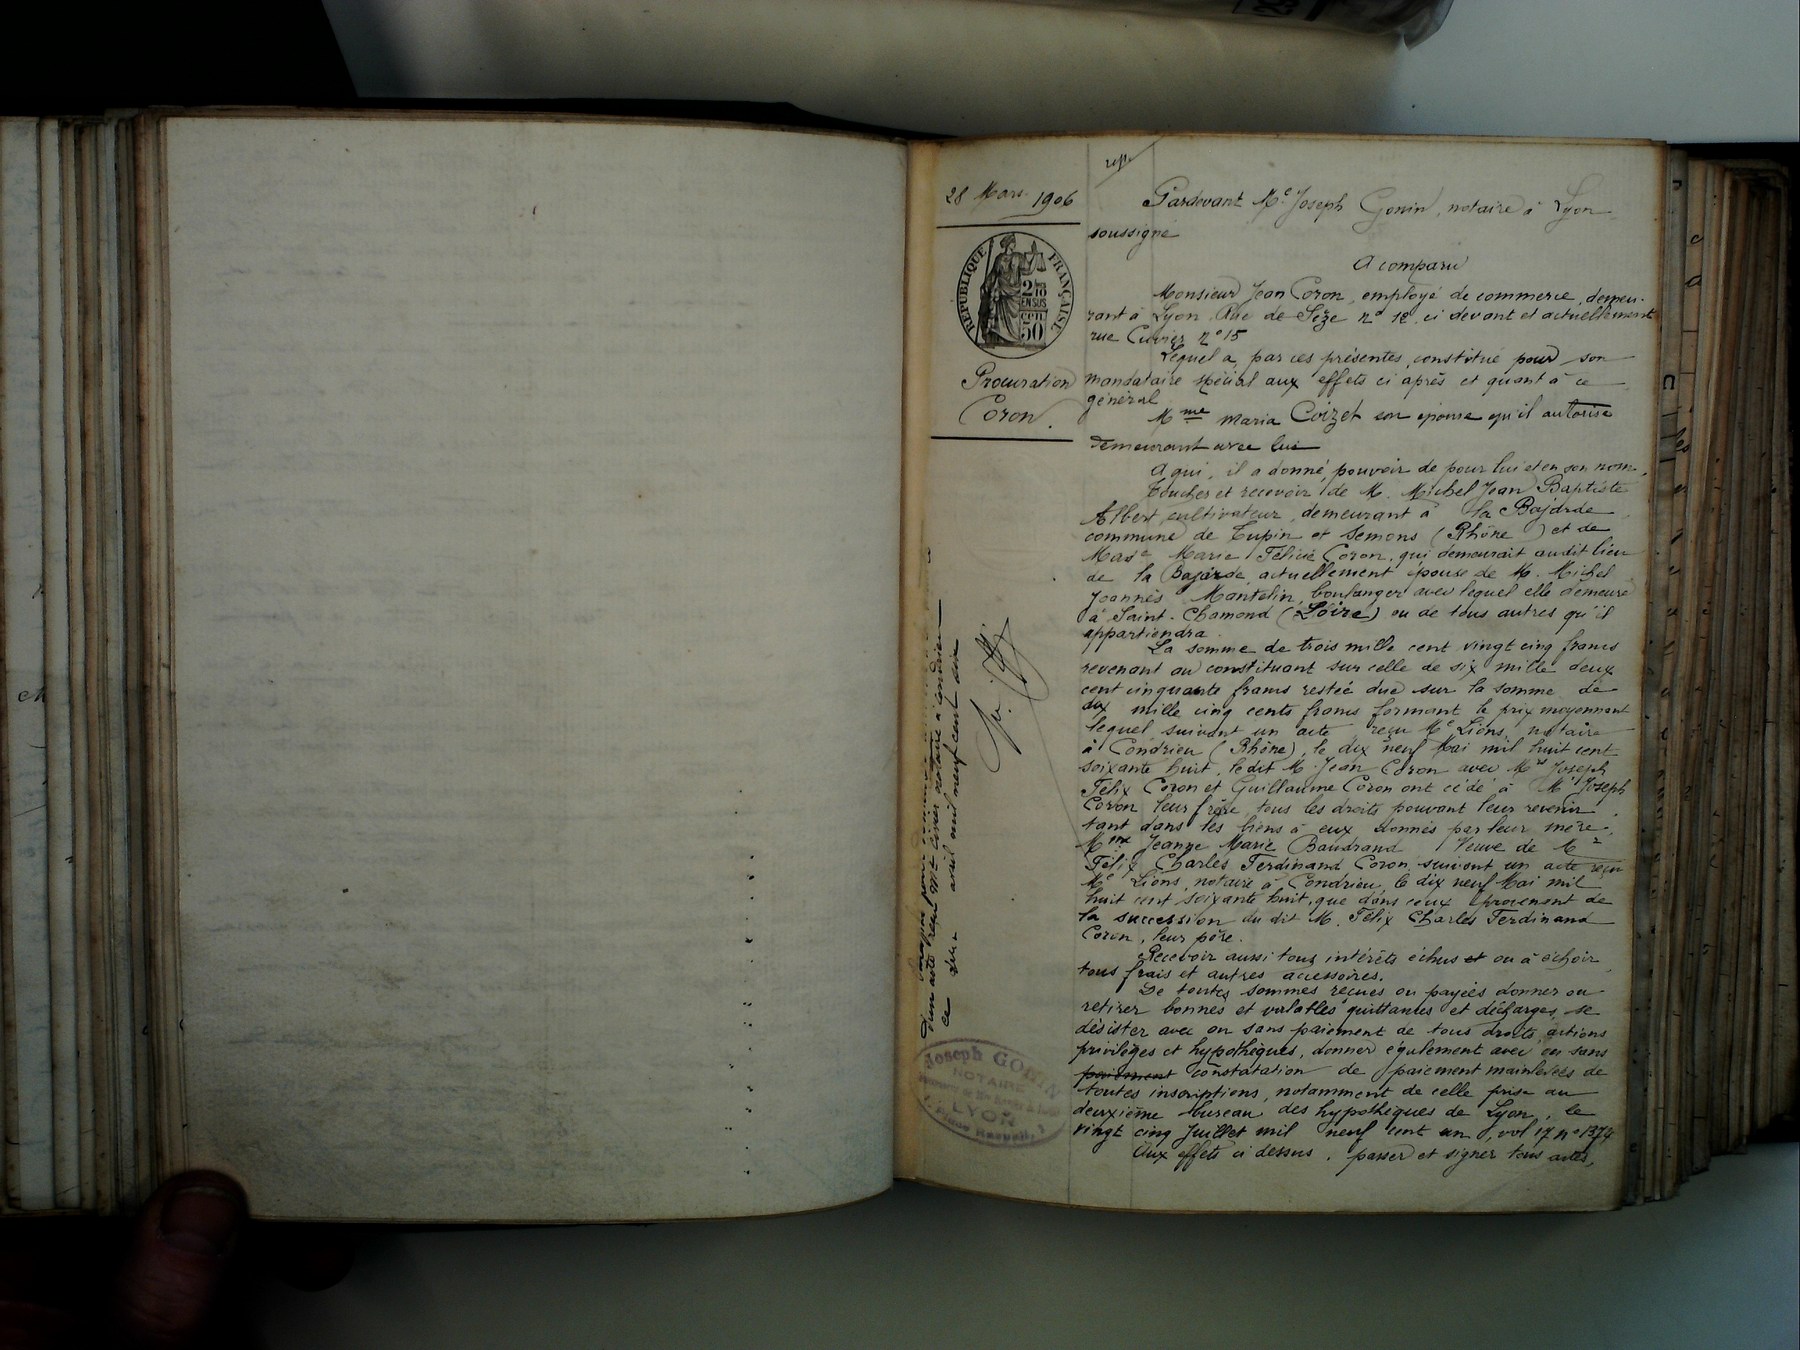 28 Mars 1906
RÉPUBLIQUE FRANÇAISE
2/10
EN SUS
50
CEN
Procuration
Coron.
Pardevant Me Joseph Gonin, notaire à Lyon
soussigné
A comparu
Monsieur Jean Coron, employé de commerce, demeu-
rant à Lyon Rue de Sèze no 12, ci devant et actuellement
rue Cuvier no 15
Lequel a, par ces présentes, constitué pour son
mandataire spécial aux effets ci après et quant à ce
général
Mme Maria Coizet son épouse qu'il autorise
demeurant avec lui
A qui, il a donné pouvoir de pour lui et en son nom.
Toucher et recevoir de M. Michel Jean Baptiste
Albert, cultivateur, demeurant à la Bajarde
commune de Tupin et Semons (Rhône) et de
Marie Félicie Coron, qui demeurait audit lieu
de la Bajarde, actuellement épouse de M. Michel
Joannès Mantelin, boulanger avec lequel elle demeure
à Saint-Chamond (Loire) ou de tous autres qu'il
appartiendra.
La somme de trois mille cent vingt cinq francs
revenant au constituant sur celle de six mille deux
cent cinquante francs restée due sur la somme de
dix mille cinq cents francs formant le prix moyennant
lequel, suivant un acte reçu Me Lions, notaire
à Condrieu (Rhône), le dix neuf Mai mil huit cent
soixante huit, ledit M. Jean Coron avec Mrs Joseph
Félix Coron et Guillaume Coron ont cédé à Mr Joseph
Coron leur frère, tous les droits pouvant leur revenir
tant dans les biens à eux donnés par leur mère,
Mme Jeanne Marie Baudrand Veuve de
Félix Charles Ferdinand Coron, suivant un acte reçu
Me Lions, notaire à Condrieu, le dix neuf Mai mil
huit cent soixante huit, que dans ceux provenant de
la succession du dit M. Félix Charles Ferdinand
Coron, leur père.
Recevoir aussi tous intérêts échus et ou à échoir,
tous frais et autres accessoires.
De toutes sommes reçues ou payées donner ou
retirer bonnes et valables quittances et décharges, se
désister avec ou sans paiement de tous droits, actions
privilèges et hypothèques, donner également avec ou sans
paiement constatation de paiement mainlevées de
toutes inscriptions, notamment de celle prise au
deuxième bureau des hypothèques de Lyon, le
vingt cinq Juillet mil neuf cent un, vol 17 no 1374
Aux effets ci dessus, passer et signer tous actes,
d'un acte reçu Me notaire à Condrieu
ce avril mil neuf cent six
Joseph GONIN
NOTAIRE
LYON